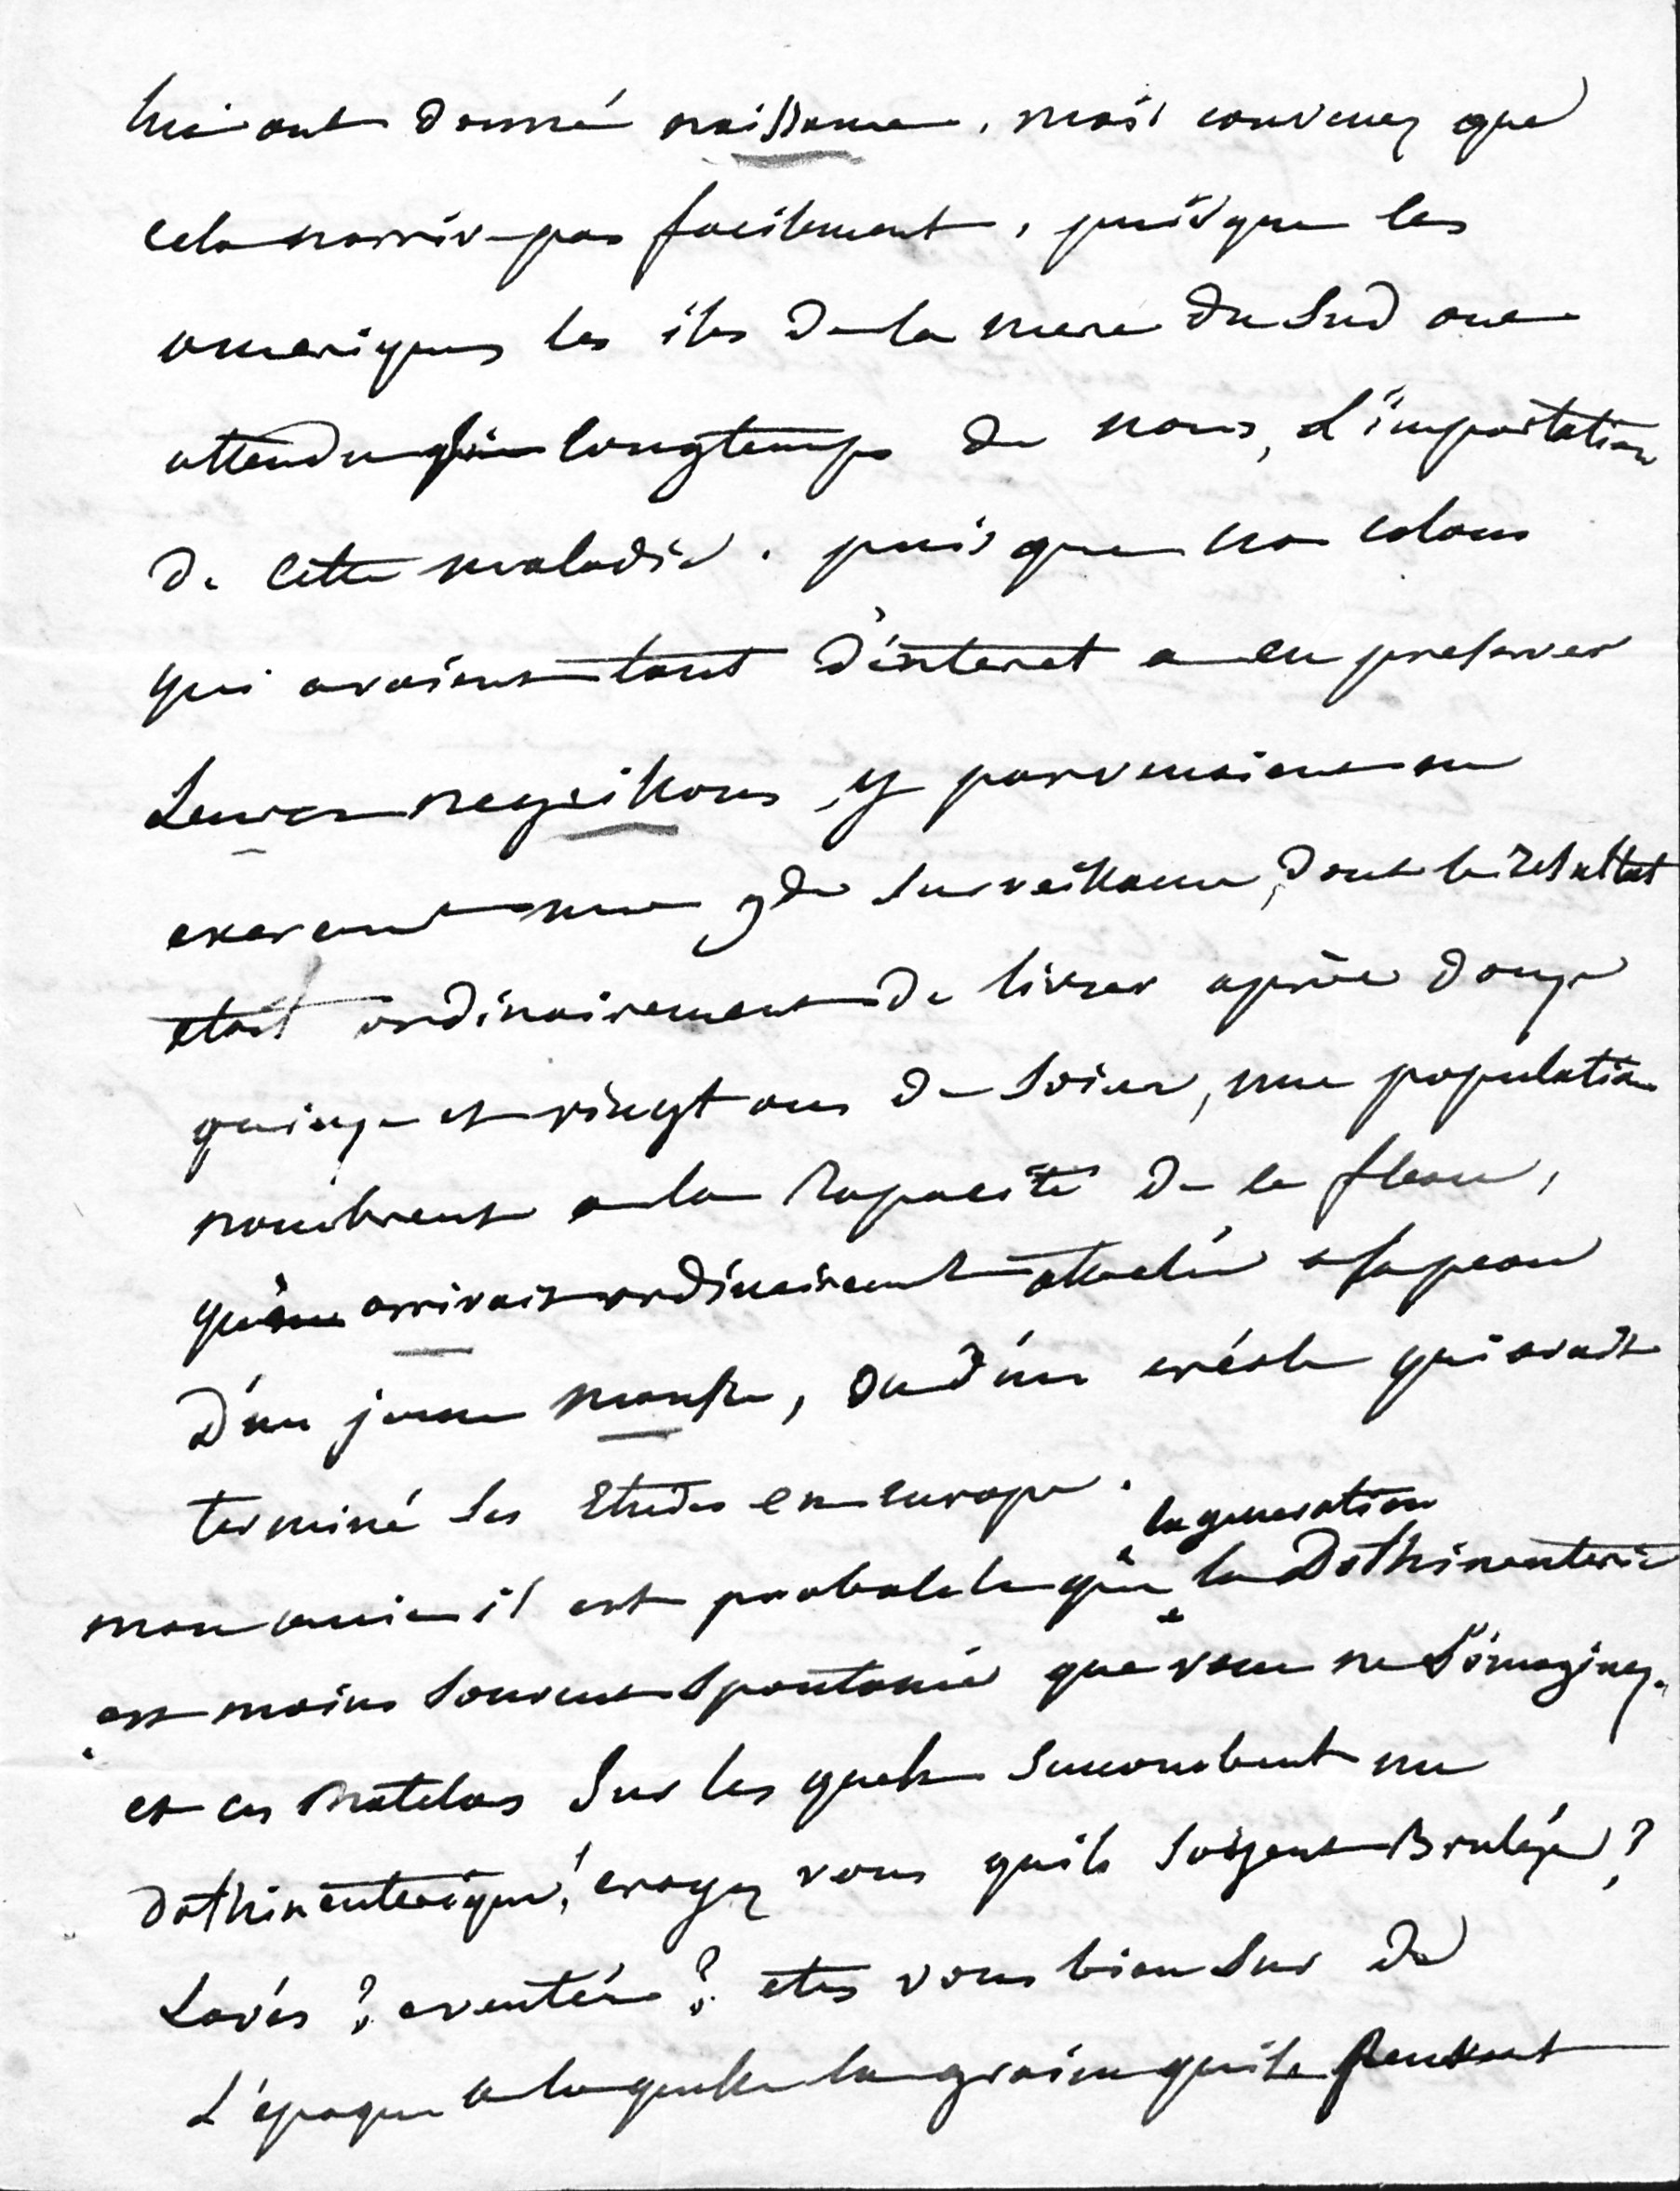 lui ont donné naissance, mais convenez que
cela narrive pas facilement, puisque les
ameriques les iles de la mere du Sud one
attendu longtemps de nous, L'importation
de cette maladie. puis que nos colons
qui avaient tant d'interet a en preserver
Leurs negrillons y parvenaient en
exercant une gde surveillance, dont le resultat
etait ordinairement de livrer après douze
quinze et vingt ans de Soins, une population
nombreuse a la rapacité de le fleau,
qui arrivait ordinairement attaché a sa peau
D'un jeune mousse, ou d'un créole qui avait
terminé Ses Etudes en europe.
la generation
mon amie il est probable que la Dothinenterie
est moins Souvent Spontanée que vous ne L'imaginez.
et ces Matelas Sur les quels Succombent un
dothinenterique, croyez vous quils Soyent Brulés?
Lavés? eventés? etes vous bien Sur de
L'époque a laquelle la graine quils